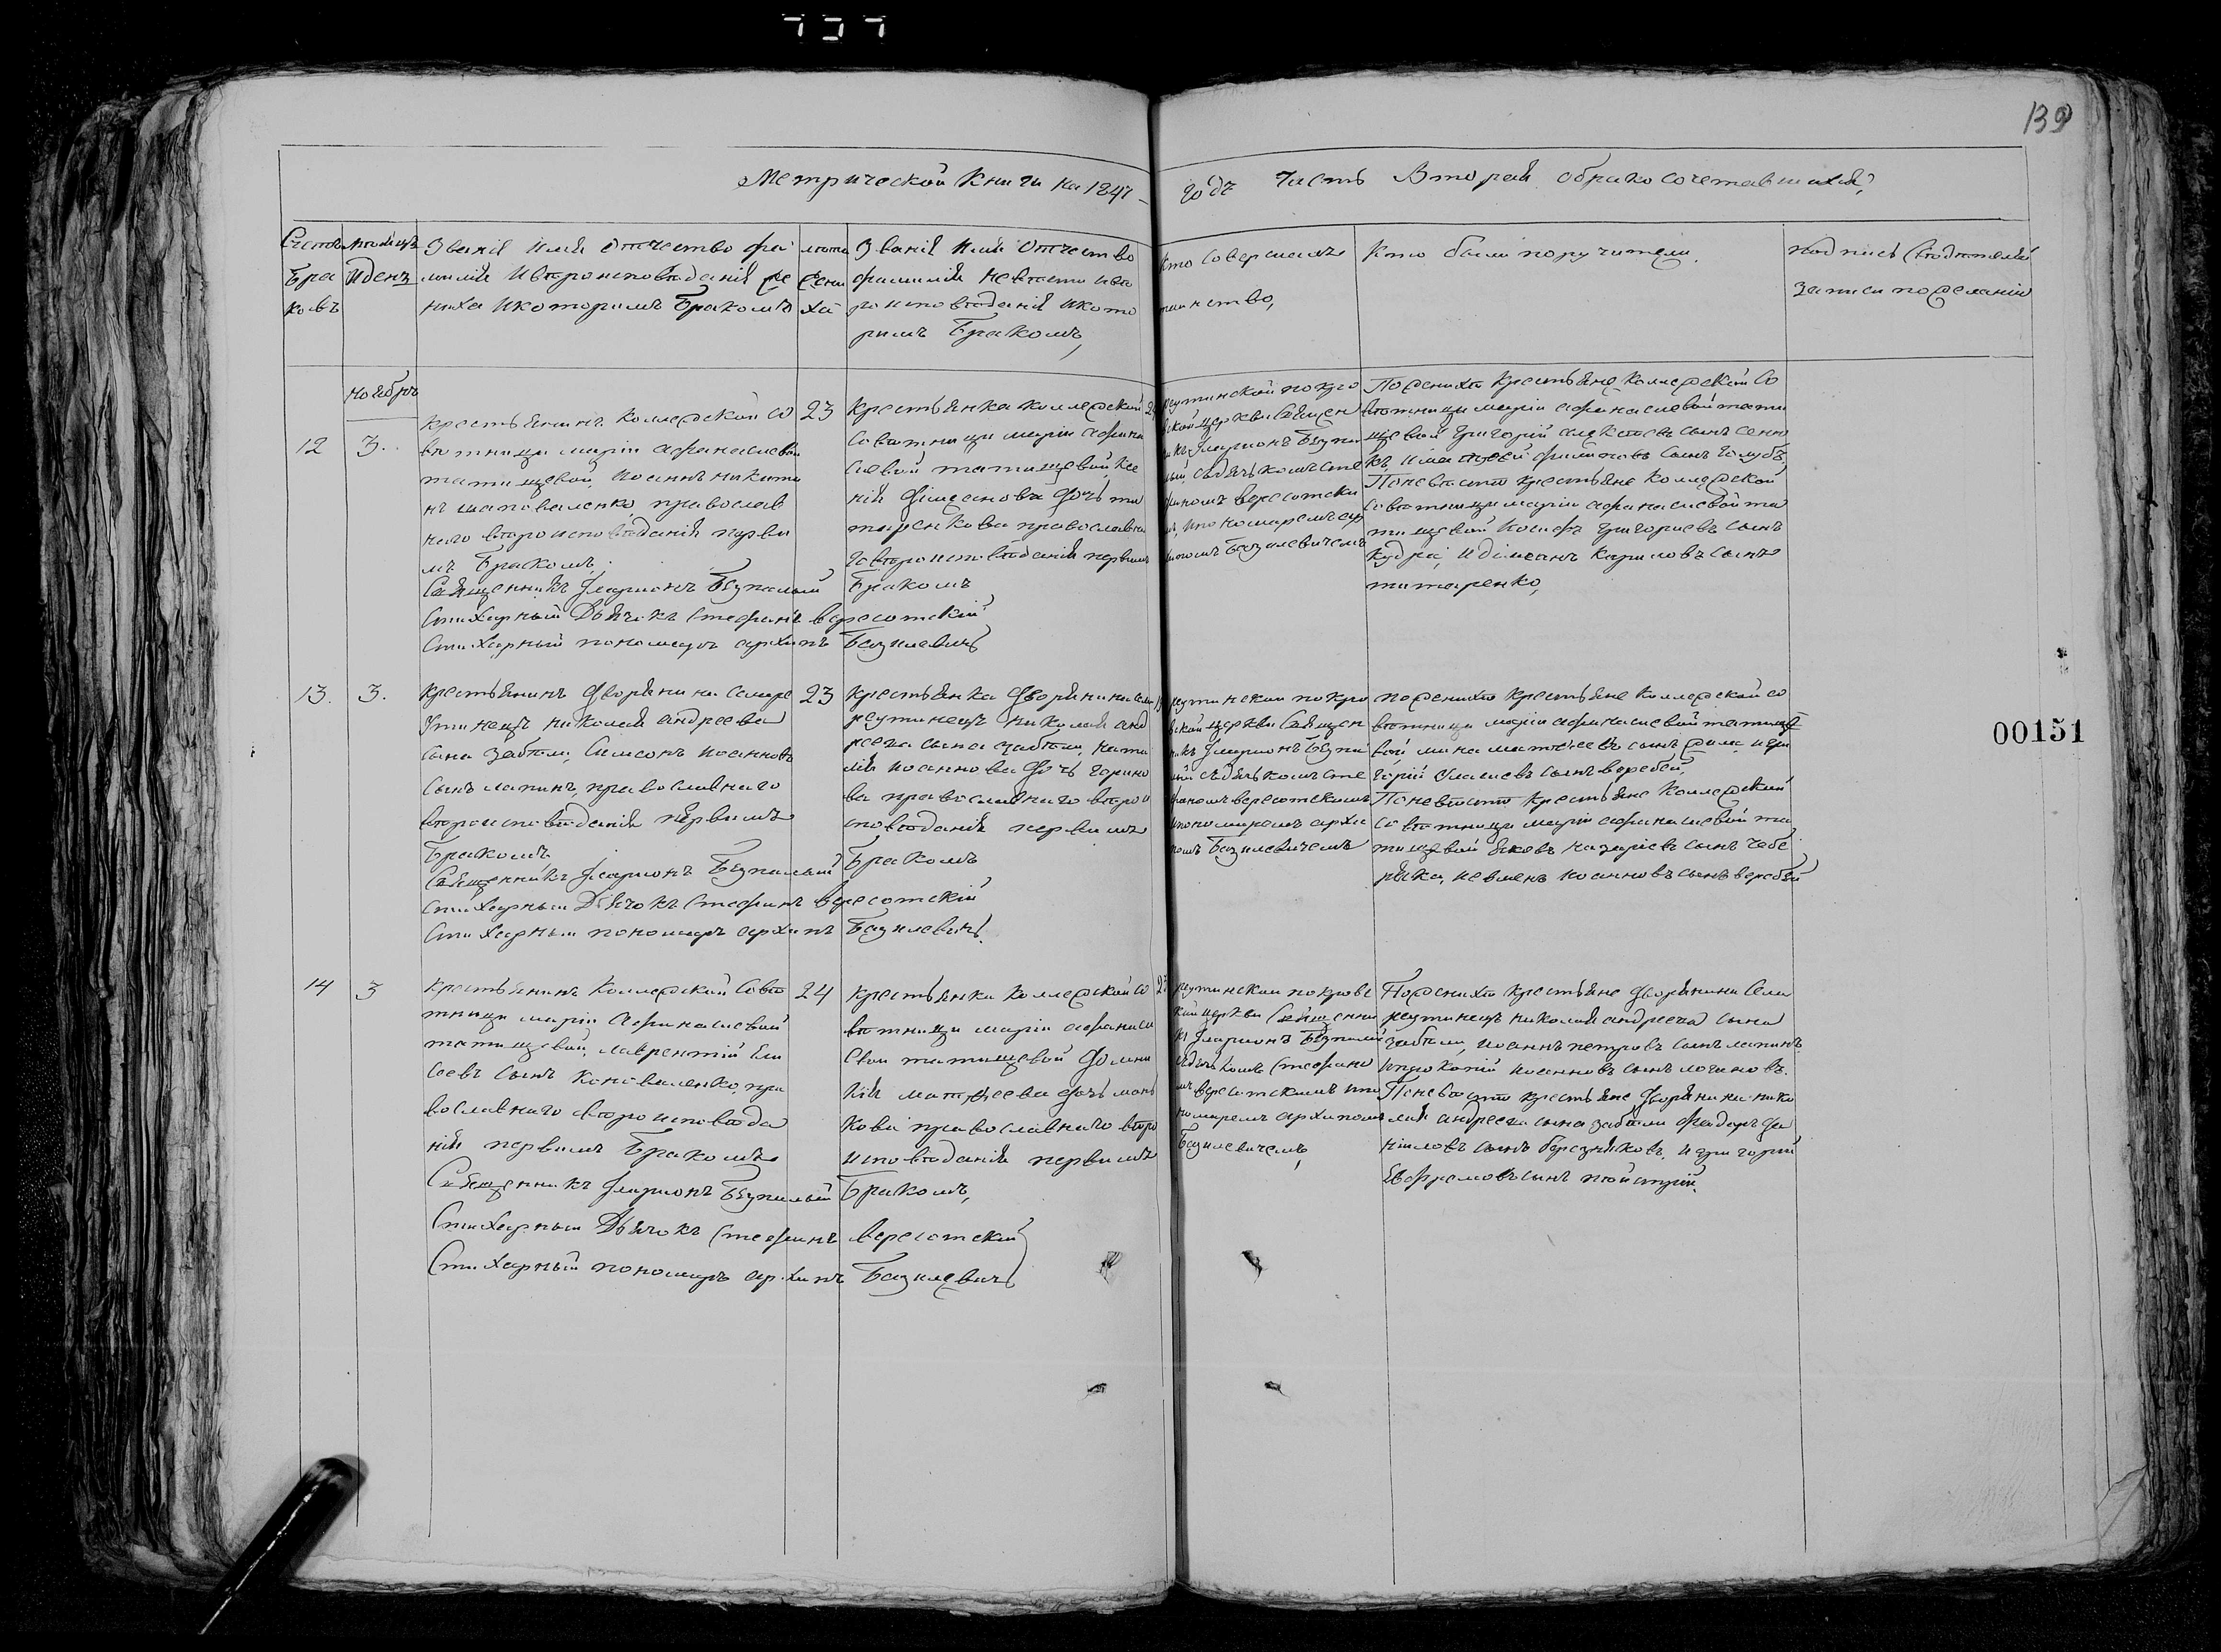 139
Метрической Книги на 1847
годъ Часть Вторая обракосочетавшихся,
Счетъ
бра
ковъ
Месяцъ
Иденъ
Званія Имя Отчество фа
милія Ивѣроисповѣданія же
ниха Икоторимъ Бракомъ
лѣта
жени
ха
Званія Имя Отчество
фамилія Невѣсти ивѣ
роисповѣданія икото
римъ Бракомъ,
Кто Совершалъ
таинство,
Кто были поручители
подпись Свѣдѣтелей
записи пожеланію
Ноября
12
3.
Крестьянинъ Коллежской Со
вѣтници маріи афанасиевой
татищевой, Иоаннъ никити
нъ шаповаленко, православ
наго вѣроисповѣданія перви
мъ Бракомъ,
Священникъ Іларионъ Безпалый
Стихарный Дьячокъ Стефанъ вересотскій
Стихарный пономарь архипъ Базилевичъ
23
Крестьянка коллежской
Совѣтници маріи афана
сиевой татищевой, Ксе
нія Дімианова дочь ти
таренкова православна
го вѣроисповѣданія первимъ
Бракомъ
реутинской покро
вской церкви Священ
никъ Іларионъ Безпа
лый, съдьячкомъ Сте
фаномъ вересотски
мъ, ипономаремъ ар
хипомъ Базилевичемъ
Поженихѣ Крестьяне Коллежской Со
вѣтници маріи афанасиевой тати
щевой Григорій алексѣевъ сынъ сенко
къ, Иматфей филиповъ сынъ голубъ,
Поневѣстѣ Крестьяне Коллежской
Совѣтници маріи афанасиевой та
тищевой Иосифъ григориевъ сынъ
кудра, идіміанъ кариловъ сынъ
титаренко,
13.
3.
Крестьянинъ дворянина села ре
утинецъ николая андреева
сына забѣли, Самсонъ иоанновъ
сынъ лапинъ, православнаго
вѣроисповѣданія первимъ
Бракомъ
Священникъ Іларионъ Безпалый
Стихарный Дьячокъ Стефанъ вересотскій
Стихарный пономарь архипъ Базилевичъ
23
Крестьянка дворянина села
реутинецъ николая анд
реева сына забѣли, ната
лія иоаннова дочь
православнаго вѣрои
сповѣданія первимъ
Бракомъ
реутинской покро
вской церкви Священ
никъ Іларионъ Безпа
лый съдьячкомъ Сте
фаномъ вересотскимъ
ипономаремъ архи
помъ Базилевичемъ
поженихѣ крестьяне коллежской со
вѣтници маріи афанасиевой татище
вой, мина матфеевъ сынъ игри
горій сынъ воробей,
Поневѣстѣ крестьяне коллежской
Совѣтници маріи афанасиевой та
тищевой яковъ назариевъ сынъ чебе
ряка, иоанновъ сынъ воробей
14
3
Крестьянинъ Коллежской Совѣ
тници маріи Афанасиевой
татищевой, лаврентій
сынъ Коноваленко, пра
вославнаго вѣроисповѣда
нія первимъ Бракомъ
Священникъ Іларионъ Безпалый
Стихарный Дьячокъ Стефанъ вересотскій
Стихарный пономарь архипъ Базилевичъ
24
Крестьянка Коллежской Со
вѣтници маріи афанаси
евой татищевой Домни
кія матфеева дочь
православнаго вѣро
исповѣданія первимъ
Бракомъ,
реутинской покровс
кой церкви Священни
къ Іларионъ Безпалый
съдьячкомъ Стефано
мъ вересотскимъ ипо
номаремъ архипомъ
Базилевичемъ,
Поженихѣ крестьяне дворянина Села
реутинецъ николая андреева сына
забѣли, иоаннъ петровъ сынъ лапинъ
ипрокопій иоанновъ сынъ логиновъ.
Поневѣстѣ крестьяне дворянина нико
лая андреева сына забѣли федоръ да
ниловъ сынъ березняковъ, игригорій
Евфремовъ сынъ
00151